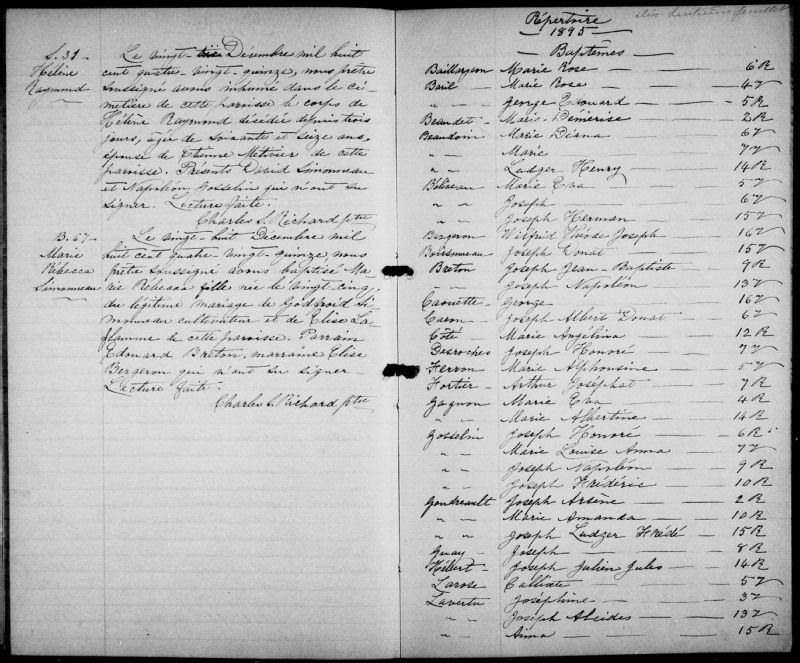 S. 31
Hélène
Raymond
Le vingt- Décembre mil huit
cent quatre-vingt-quinze, nous prêtre
soussigné avons inhumé dans le ci-
metière de cette paroisse le corps de
Hélène Raymond décédée depuis trois
jours, agée de soixante et seize ans,
épouse de Etienne Metivier de cette
paroisse. Présents David Simonneau
et Napoléon Gosselin qui n'ont su
signer. Lecture faite.
Charles S. Richard ptre
B. 67
Marie
Rébecca
Simonneau
Le vingt-huit Décembre mil
huit cent quatre-vingt-quinze, nous
prêtre soussigné avons baptisé Ma-
rie Rebecca fille née le vingt-cinq,
du légitime mariage de Godfroid Si-
monneau cultivateur et de Elise La-
flamme de cette paroisse. Parrain
Edouard Breton, marraine Elise
Bergeron qui n'ont su signer.
Lecture faite.
Charles S. Richard ptre
feuillet
Répertoire
1895
Baptêmes
Baillargeon Marie Rose 6 R
Baril Marie Rose 4 V
" " George Edouard 5 R
Beaudet Marie Démerise 2 R
Beaudoin Marie Diana 6 V
" " Marie 7 V
" " Ludger Henry 14 R
Béliveau Marie Eva 5 V
" " Joseph 6 V
" " Joseph Herman 15 V
Bergeron Wilfrid Joseph 16 V
Boissonneau Joseph Donat 15 V
Breton Joseph Jean-Baptiste 9 R
" " Joseph Napoléon 13 V
Caouette George 16 V
Caron Joseph Albert Donat 6 V
Côté Marie Angélina 12 R
Desroches Joseph Honoré 7 V
Ferron Marie Alphonsine 5 V
Fortier Arthur Joséphat 7 R
Gagnon Marie Eva 4 R
" " Marie Albertine 14 R
Gosselin Joseph Honoré 6 R
" " Marie Louise Anna 7 V
" " Joseph Napoléon 9 R
" " Joseph Frédéric 10 R
Goudreault Joseph Arsène 2 R
" " Marie Amanda 10 R
" " Joseph Ludger Frédé 15 R
Guay Joseph 8 R
Hébert Joseph Julien Jules 14 R
Larose Callixte 5 V
Lavertu Joséphine 3 V
" " Joseph Alcides 13 V
" " Anna 15 R